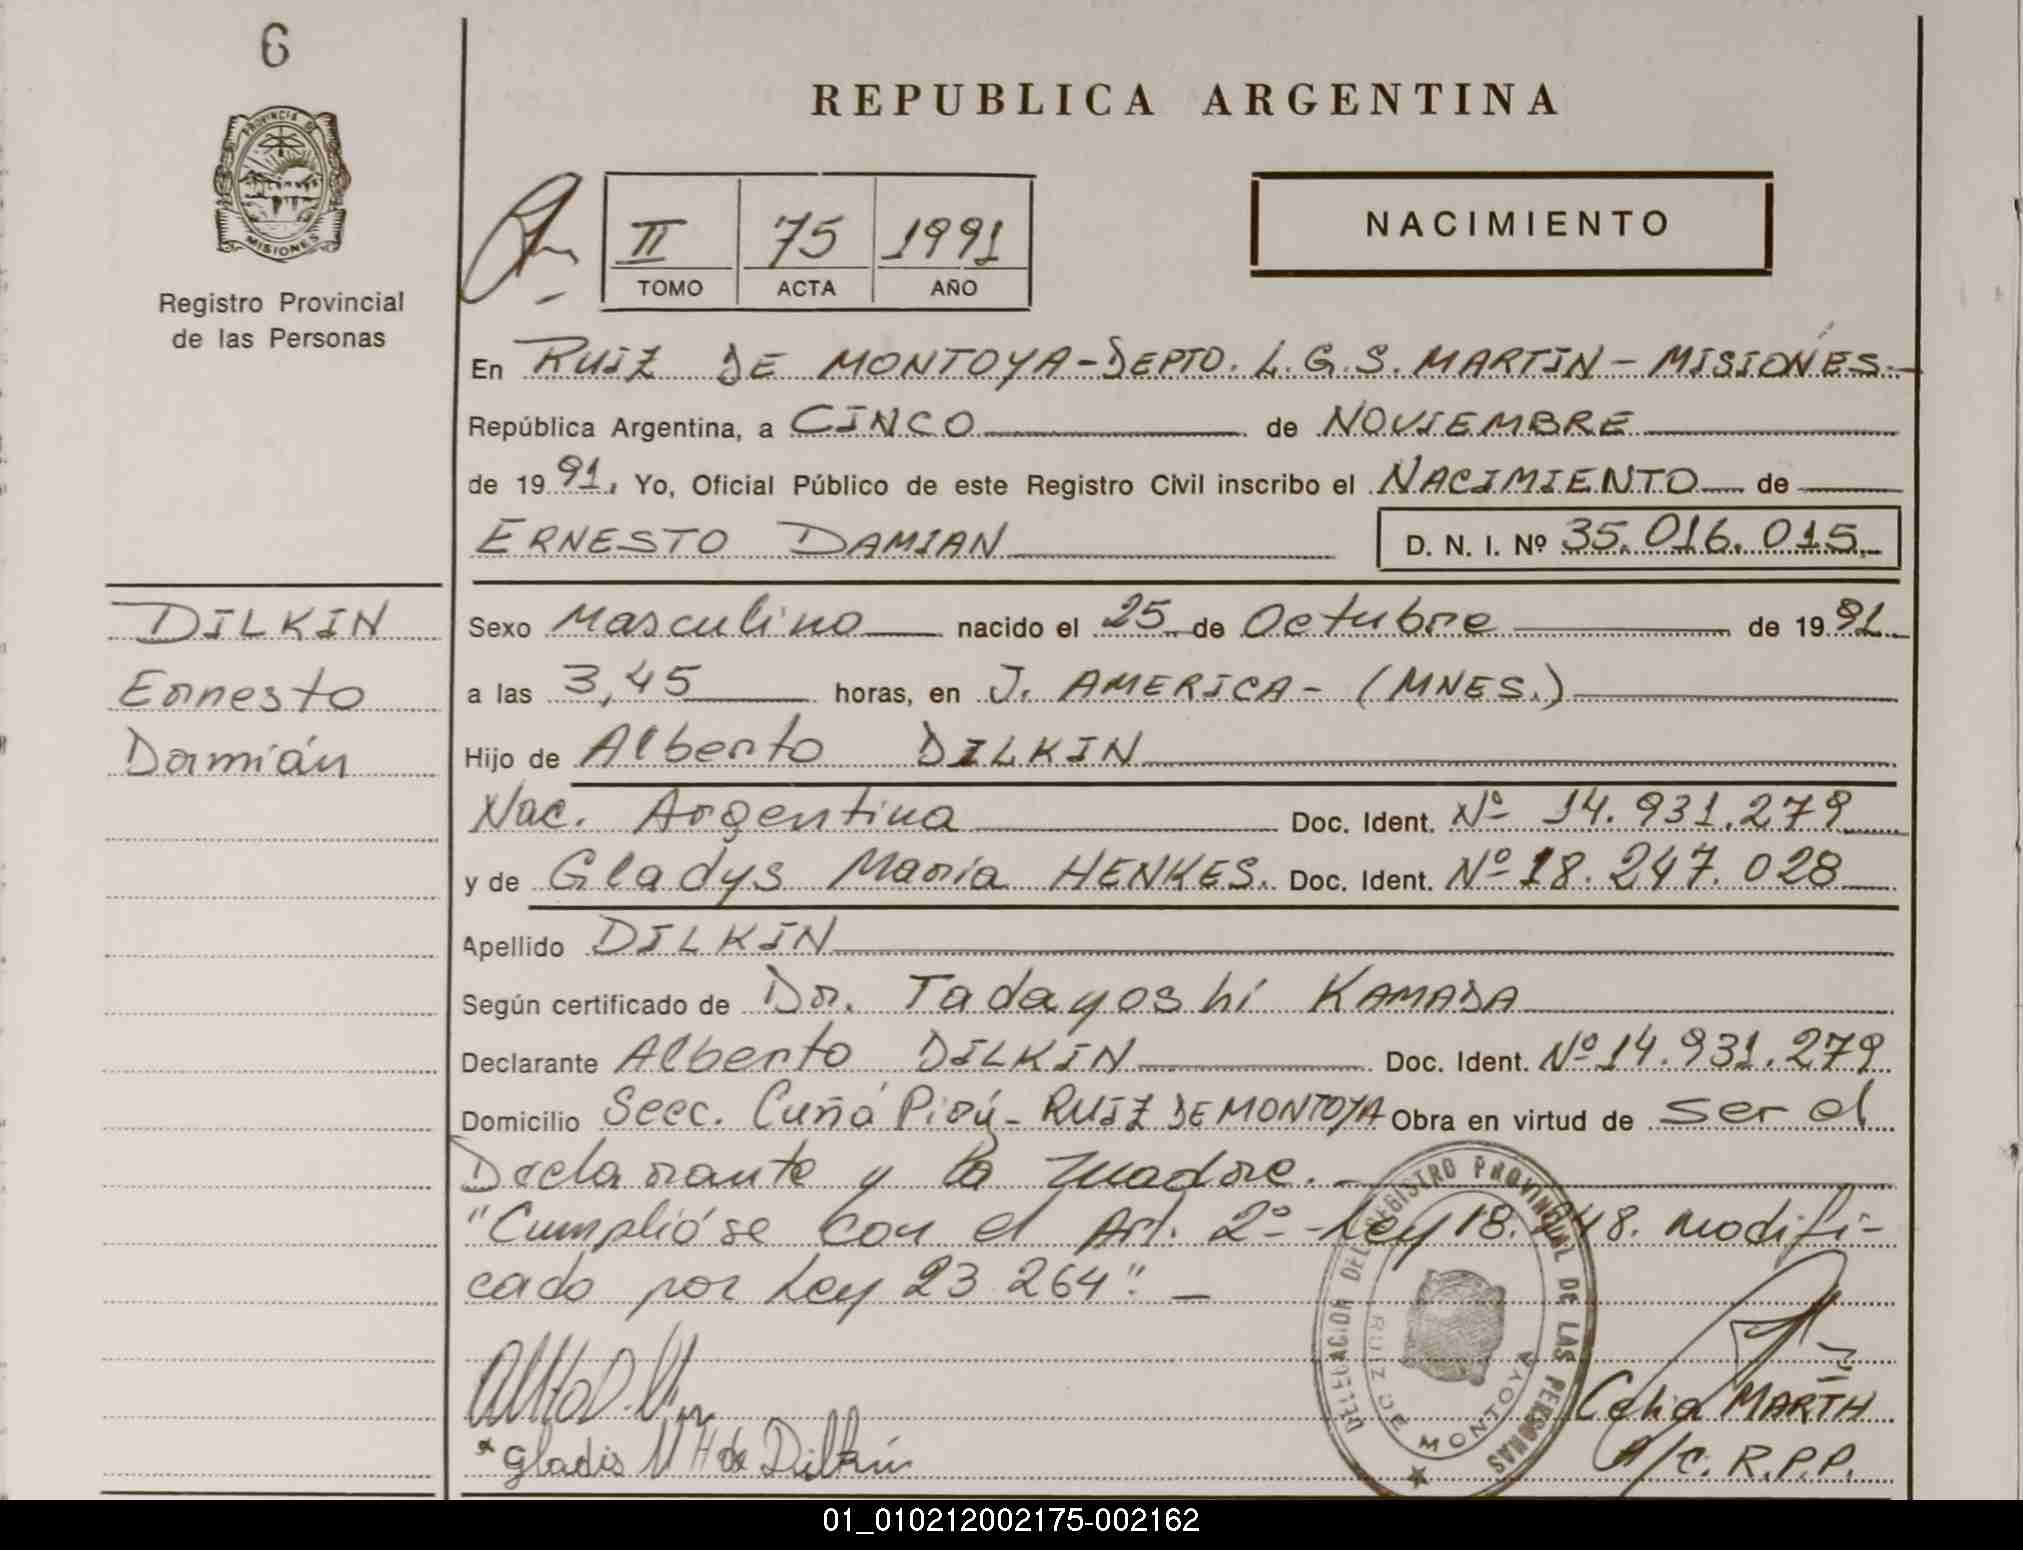 6
PROVINCIA DE
MISIONES
Registro Provincial
de las Personas
REPUBLICA ARGENTINA
NACIMIENTO
II 75 1991
TOMO ACTA AÑO
En RUIZ DE MONTOYA-DEPTO. L.G.S. MARTIN - MISIONES.-
República Argentina, a CINCO de NOVIEMBRE
de 1991, Yo, Oficial Público de este Registro Civil inscribo el NACIMIENTO de
ERNESTO DAMIAN D. N. I. Nº 35.016.015.-
DILKIN
Ernesto
Damián
Sexo Masculino nacido el 25 de Octubre de 1991.
a las 3,45 horas, en J. AMERICA- (MNES.)
Hijo de Alberto DILKIN
Nac. Argentina Doc. Ident. Nº 14.931.279
y de Gladys Maria HENKES. Doc. Ident. Nº 18.247.028
Apellido DILKIN
Según certificado de Dr. Tadayoshi KAMADA
Declarante Alberto DILKIN Doc. Ident. Nº 14.931.279
Domicilio Secc. Cuñá Pirú- RUIZ DE MONTOYA Obra en virtud de ser el
Declarante y la madre.-
"Cumplióse con el Art. 2º Ley 18.248. modifi-
cado por Ley 23.264".-
DELEGACION DEL REGISTRO PROVINCIAL DE LAS PERSONAS
RUIZ DE MONTOYA
Gladis M H de Dilkin
Celia MARTH
A/C. R.P.P.
01_010212002175-002162